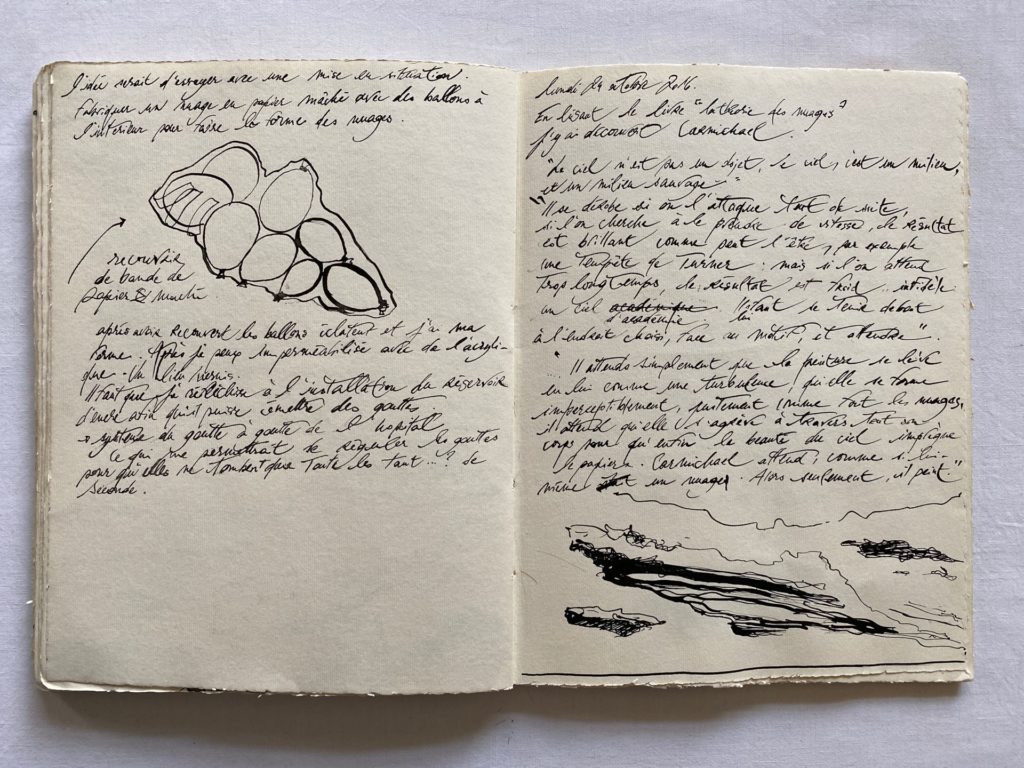 l'idée serait d'essayer avec une mise en situation.
Fabriquer un nuage en papier mâché avec des ballons à
l'intérieur pour faire la forme des nuages.
recouvrir
de bande de
papier
après avoir recouvert les ballons éclatent et j'ai ma
forme. Après je peux imperméabilise avec de l'acryli-
que. Un vernis.
Il faut que je réfléchisse à l'installation du réservoir
d'encre afin qu'il puisse émettre des gouttes
→ système du goutte à goutte de l'hopital
ce qui me permettrait de réguler les gouttes
pour qu'elles ne tombent que toute les tant...? de
seconde.
lundi 24 octobre 2016.
En lisant le livre "la théorie des nuages"
j'y ai découvert Carmichael.
"Le ciel n'est pas un objet, le ciel, c'est un milieu,
et un milieu sauvage."
"Il se dérobe si on l'attaque tout de suite,
si l'on cherche à le prendre de vitesse, le résultat
est brillant comme peut l'être, par exemple
une tempête de Turner : mais si l'on attend
trop longtemps, le résultat est froid, infidèle
un ciel académique. Il faut se tenir debout
d'académie
à l'endroit choisi, face au motif, et attendre".
"Il attend simplement que la peinture se lève
en lui comme une turbulence, qu'elle se forme
imperceptiblement, justement comme font les nuages,
il attend qu'elle s'agrège à travers tout son
corps pour qu'enfin la beauté du ciel
le papier. Carmichael attend, comme si lui-
même était un nuage. Alors seulement, il peint"